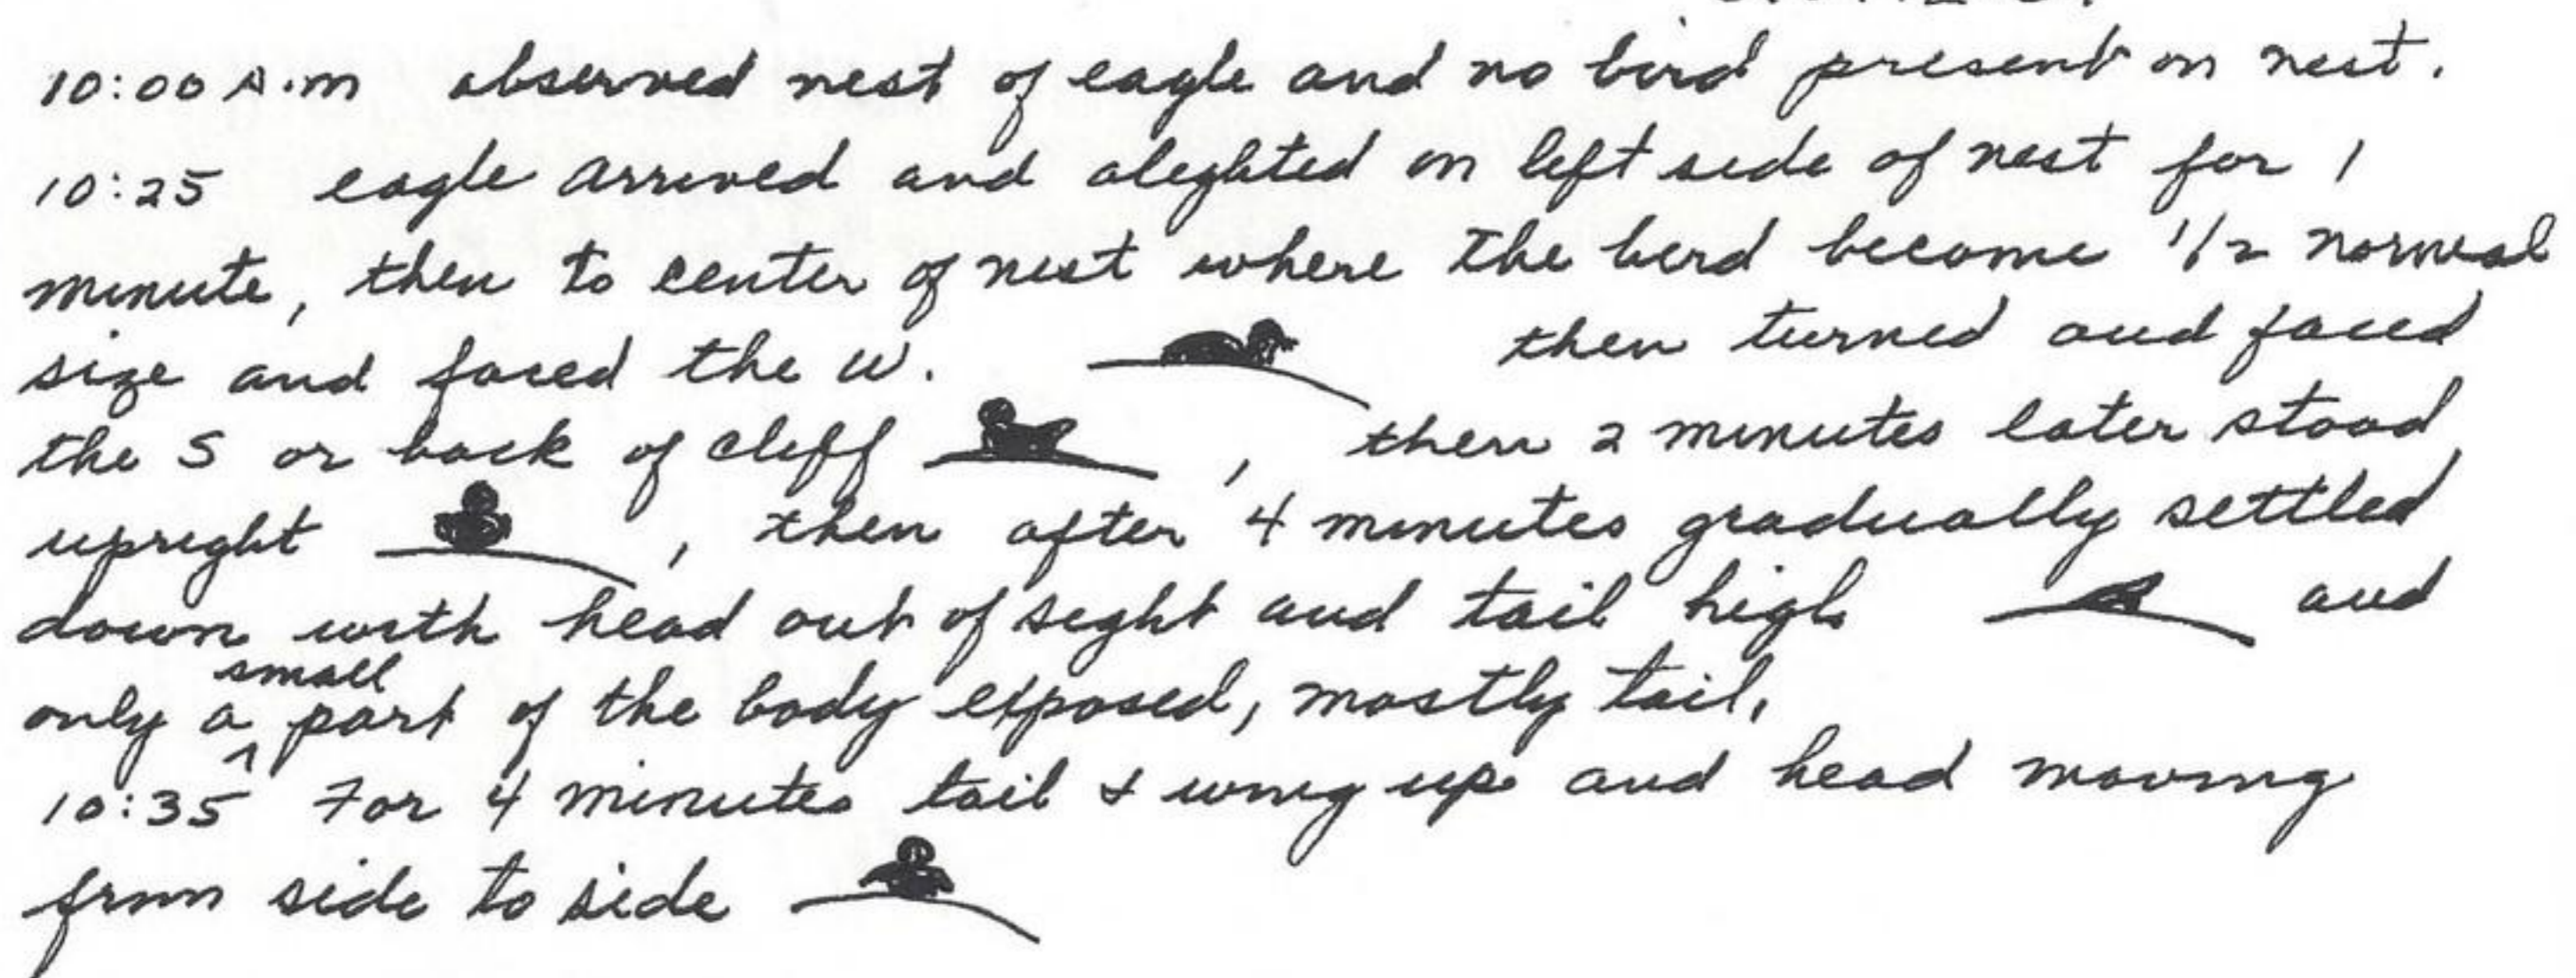 10:00 A.m observed nest of eagle and no bird present on nest.
10:25 eagle arrived and alighted on left side of nest for 1
minute, then to center of nest where the bird become 1/2 normal
size and faced the W. then turned and faced
the S or back of cliff , then 2 minutes later stood
upright , then after 4 minutes gradually settled
down with head out of sight and tail high and
only a small part of the body exposed, mostly tail.
10:35 For 4 minutes tail & wing up and head moving
from side to side